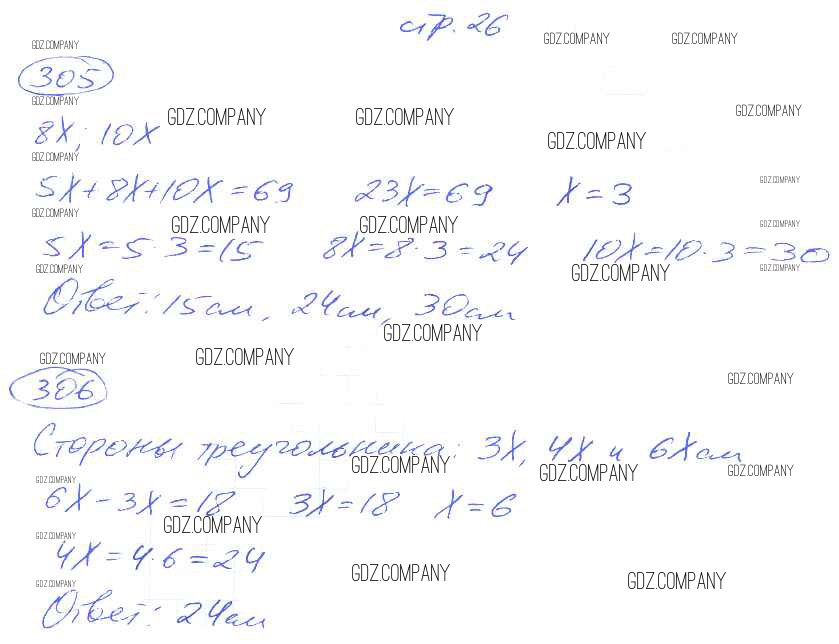 стр. 26
GDZ.COMPANY GDZ.COMPANY GDZ.COMPANY
305
GDZ.COMPANY GDZ.COMPANY GDZ.COMPANY GDZ.COMPANY
8X; 10X GDZ.COMPANY
GDZ.COMPANY GDZ.COMPANY
5X+8X+10X=69 23X=69 X=3
GDZ.COMPANY GDZ.COMPANY GDZ.COMPANY GDZ.COMPANY
5X=5·3=15 8X=8·3=24 10X=10·3=30
GDZ.COMPANY GDZ.COMPANY GDZ.COMPANY
Ответ: 15см, 24см, 30см
GDZ.COMPANY
GDZ.COMPANY GDZ.COMPANY
306 GDZ.COMPANY
Стороны треугольника: 3X, 4X и 6X см
GDZ.COMPANY GDZ.COMPANY GDZ.COMPANY GDZ.COMPANY
6X-3X=18 3X=18 X=6
GDZ.COMPANY GDZ.COMPANY
4X=4·6=24
GDZ.COMPANY GDZ.COMPANY GDZ.COMPANY
Ответ: 24см